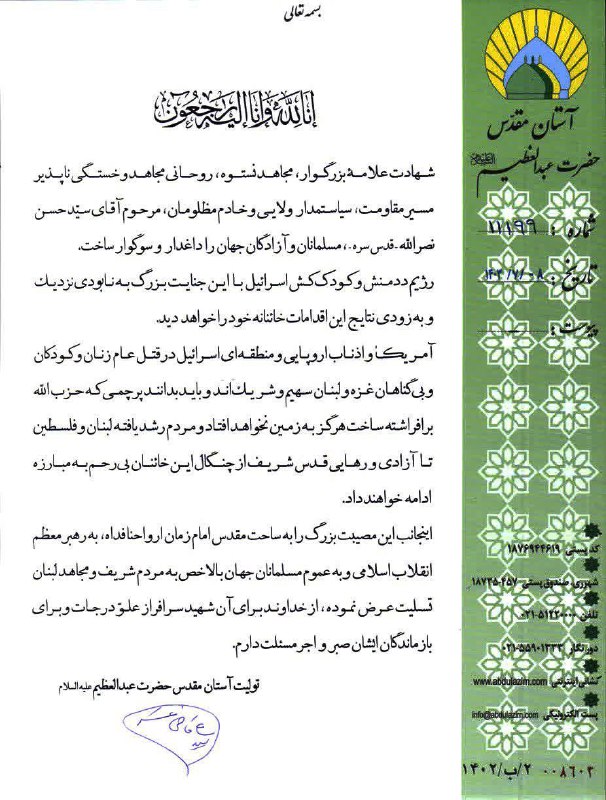 بسمه تعالی
انا لله و انا الیه راجعون
شهادت علامهٔ بزرگوار، مجاهد نستوه، روحانی مجاهد و خستگی ناپذیر
مسیر مقاومت، سیاستمدار ولایی و خادم مظلومان، مرحوم آقای سیّد حسن
نصرالله-قدس سره-، مسلمانان و آزادگان جهان را داغدار و سوگوار ساخت.
رژیم ددمنش و کودک‌کش اسرائیل با این جنایت بزرگ به نابودی نزدیک
و به زودی نتایج این اقدامات خائنانه خود را خواهد دید.
آمریکا و اذناب اروپایی و منطقه‌ای اسرائیل در قتل عام زنان و کودکان
و بی‌گناهان غزه و لبنان سهیم و شریک‌اند و باید بدانند پرچمی که حزب الله
برافراشته ساخت هرگز به زمین نخواهد افتاد و مردم رشد یافته لبنان و فلسطین
تا آزادی و رهایی قدس شریف از چنگال این خائنان بی‌رحم به مبارزه
ادامه خواهند داد.
اینجانب این مصیبت بزرگ را به ساحت مقدس امام زمان ارواحنا فداه، به رهبر معظم
انقلاب اسلامی و به عموم مسلمانان جهان بالاخص به مردم شریف و مجاهد لبنان
تسلیت عرض نموده، از خداوند برای آن شهید سرافراز علوّ درجات و برای
بازماندگان ایشان صبر و اجر مسئلت دارم.
تولیت آستان مقدس حضرت عبدالعظیم علیه السلام
آستان مقدّس
حضرت عبدالعظیم
شماره: ۱۱۱۹۹
تاریخ: ۱۴۰۳/۷/۰۸
پیوست:
کد پستی ۱۸۷۶۹۴۴۶۱۹
شهرری، صندوق پستی ۴۵۷-۱۸۷۳۵
تلفن ۵۱۲۲۰۰۰۰-۰۲۱
دورنگار ۵۵۹۰۱۳۳۳-۰۲۱
نشانی اینترنتی www.abdulazim.com
پست الکترونیکی info@abdulazim.com
۱۴۰۲/ب/۲ ۰۰۸۶۰۳